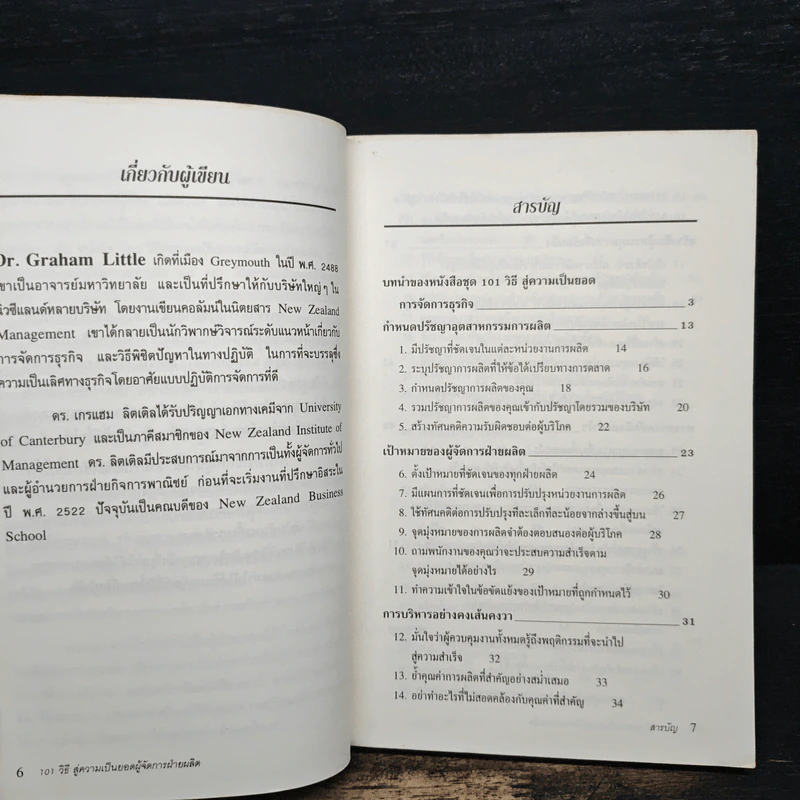 เกี่ยวกับผู้เขียน
Dr. Graham Little เกิดที่เมือง Greymouth ในปี พ.ศ. 2488
เขาเป็นอาจารย์มหาวิทยาลัย และเป็นที่ปรึกษาให้กับบริษัทใหญ่ๆ ใน
นิวซีแลนด์หลายบริษัท โดยงานเขียนคอลัมน์ในนิตยสาร New Zealand
Management เขาได้กลายเป็นนักวิพากษ์วิจารณ์ระดับแนวหน้าเกี่ยวกับ
การจัดการธุรกิจ และวิธีพิชิตปัญหาในทางปฏิบัติ ในการที่จะบรรลุซึ่ง
ความเป็นเลิศทางธุรกิจโดยอาศัยแบบปฏิบัติการจัดการที่ดี
ดร. เกรแฮม ลิตเติลได้รับปริญญาเอกทางเคมีจาก University
of Canterbury และเป็นภาคีสมาชิกของ New Zealand Institute of
Management ดร. ลิตเติลมีประสบการณ์มาจากการเป็นทั้งผู้จัดการทั่วไป
และผู้อำนวยการฝ่ายกิจการพาณิชย์ ก่อนที่จะเริ่มงานที่ปรึกษาอิสระใน
ปี พ.ศ. 2522 ปัจจุบันเป็นคณบดีของ New Zealand Business
School
6 101 วิธี สู่ความเป็นยอดผู้จัดการฝ่ายผลิต
สารบัญ
บทนำของหนังสือชุด 101 วิธี สู่ความเป็นยอด
การจัดการธุรกิจ 3
กำหนดปรัชญาอุตสาหกรรมการผลิต 13
1. มีปรัชญาที่ชัดเจนในแต่ละหน่วยงานการผลิต 14
2. ระบุปรัชญาการผลิตที่ให้ข้อได้เปรียบทางการตลาด 16
3. กำหนดปรัชญาการผลิตของคุณ 18
4. รวมปรัชญาการผลิตของคุณเข้ากับปรัชญาโดยรวมของบริษัท 20
5. สร้างทัศนคติความรับผิดชอบต่อผู้บริโภค 22
เป้าหมายของผู้จัดการฝ่ายผลิต 23
6. ตั้งเป้าหมายที่ชัดเจนของทุกฝ่ายผลิต 24
7. มีแผนการที่ชัดเจนเพื่อการปรับปรุงหน่วยงานการผลิต 26
8. ใช้ทัศนคติต่อการปรับปรุงทีละเล็กทีละน้อยจากล่างขึ้นสู่บน 27
9. จุดมุ่งหมายของการผลิตจำต้องตอบสนองต่อผู้บริโภค 28
10. ถามพนักงานของคุณว่าจะประสบความสำเร็จตาม
จุดมุ่งหมายได้อย่างไร 29
11. ทำความเข้าใจในข้อขัดแย้งของเป้าหมายที่ถูกกำหนดไว้ 30
การบริหารอย่างคงเส้นคงวา 31
12. มั่นใจว่าผู้ควบคุมงานทั้งหมดรู้ถึงพฤติกรรมที่จะนำไป
สู่ความสำเร็จ 32
13. ย้ำคุณค่าการผลิตที่สำคัญอย่างสม่ำเสมอ 33
14. อย่าทำอะไรที่ไม่สอดคล้องกับคุณค่าที่สำคัญ 34
สารบัญ 7